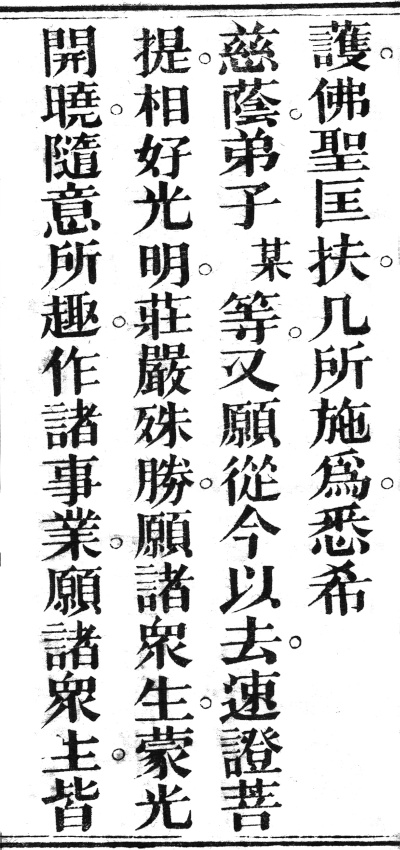 護。佛聖匡扶。几所施爲。悉希
慈蔭。弟子某等。又願從今以去。速證菩
提。相好光明。莊嚴殊勝。願諸衆生。蒙光
開曉。隨意所趣。作諸事業。願諸衆生。皆